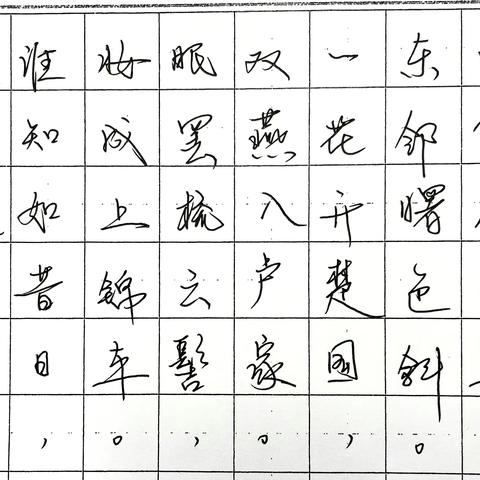 东邻曙色斜。
一花开楚国，
双燕入卢家。
眠罢梳云髻，
妆成上锦车。
谁知如昔日，